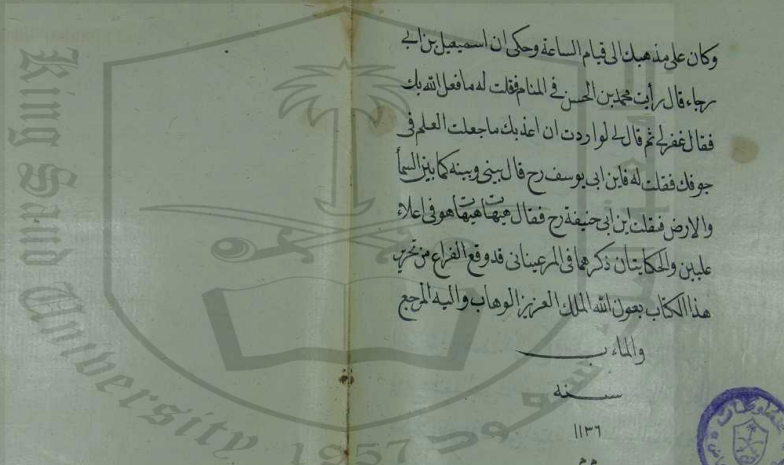 وكان على مذهبك الى قيام الساعة وحكى ان اسمعيل بن ابى
رجاء قال رأيت محمد بن الحسن فى المنام فقلت له ما فعل الله بك
فقال غفر لى ثم قال لى لو اردت ان اعذبك ما جعلت العلم فى
جوفك فقلت له فاين ابى يوسف رح قال بينى وبينه كما بين السمأ
والارض فقلت اين ابى حنيفة رح فقال هيهات هيهات هو فى اعلاء
عليين والحكايتان ذكرهما فى المرغينانى قد وقع الفراغ من تحرير
هذا الكتاب بعون الله الملك العزيز الوهاب واليه المرجع
والمأب
سنه
١١٣٦
م م
King Saud University
1957